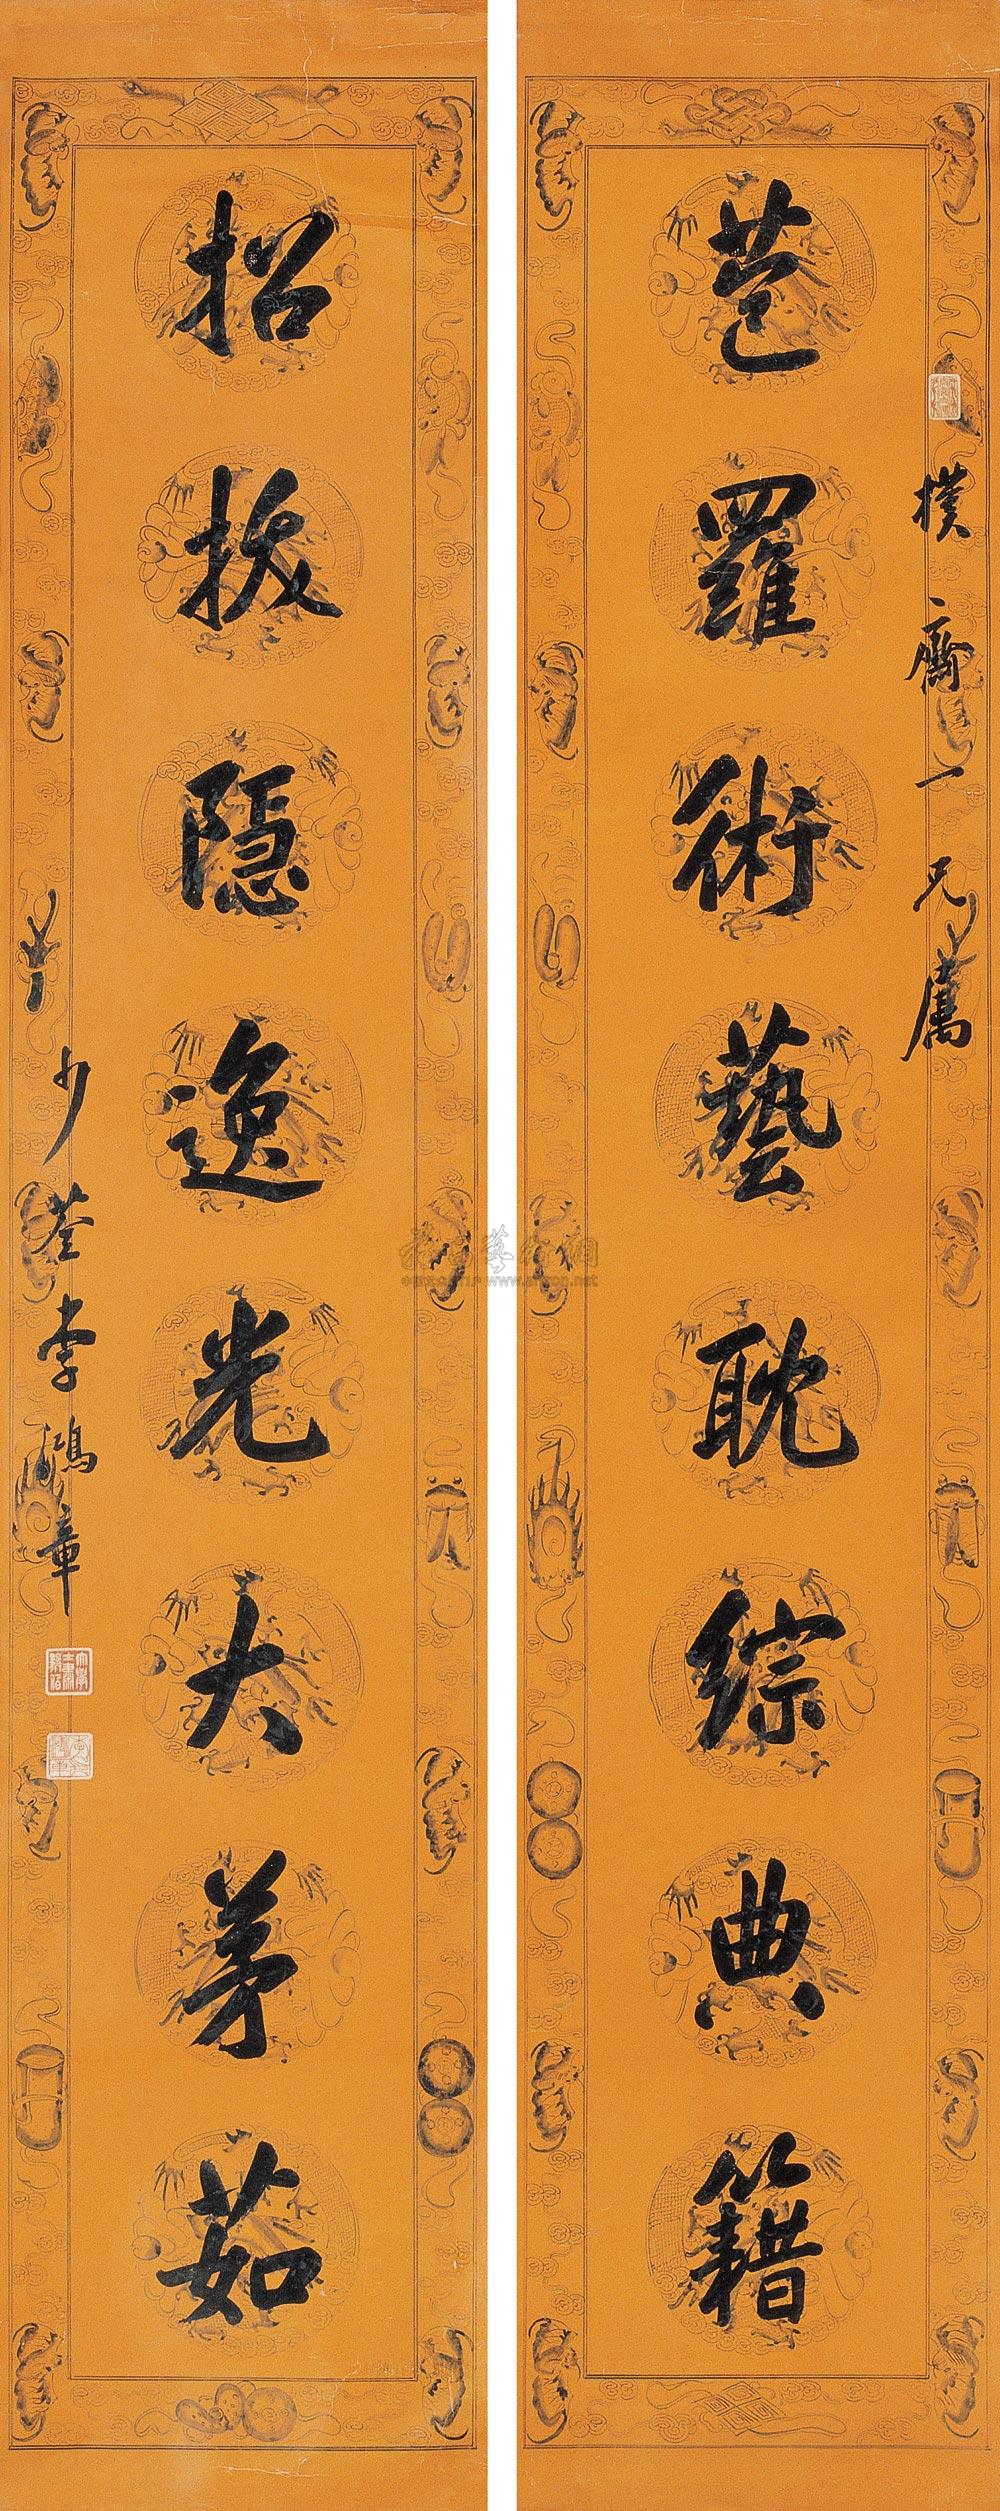 苞羅術藝耽綜典籍
樸齋一兄屬
招拔隱逸光大茅茹
少荃李鴻章
www.artron.net